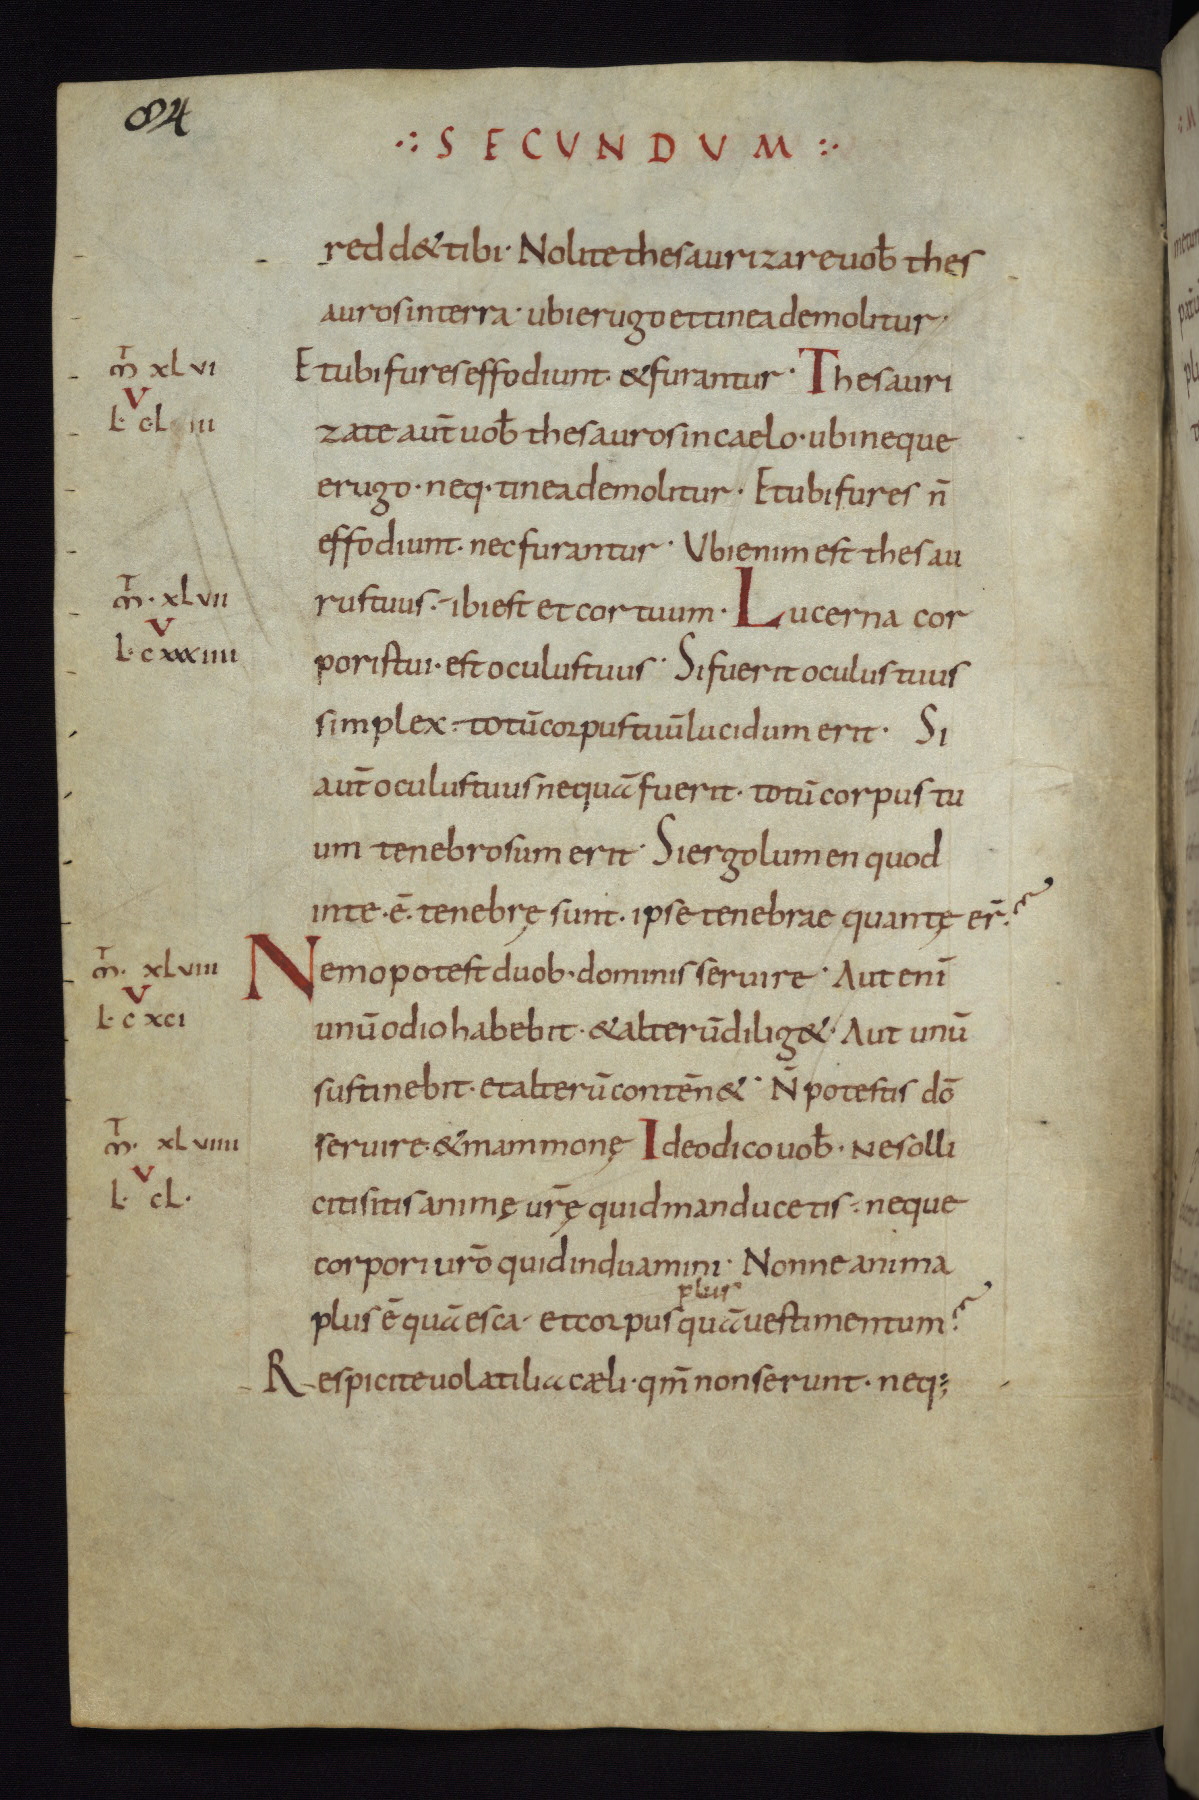 84
·:· SECUNDUM :·
redd& tibi· Nolite thesaurizare uob̄ thes
auros in terra· ubi erugo et tinea demolitur·
m̄ xlvi
Et ubi fures effodiunt· & furantur· Thesauri
V
L· cl iii
zate aut̄ uob̄ thesauros in caelo· ubi neque
erugo· neq· tinea demolitur· Et ubi fures n̄
effodiunt· nec furantur· Ubi enim est thesau
m̄· xlvii
rus tuus· ibi est et cor tuum· Lucerna cor
V
L· cxxxiiii
poris tui· est oculus tuus· Si fuerit oculus tuus
simplex· totū corpus tuū lucidum erit· Si
aut̄ oculus tuus nequā fuerit· totū corpus tu
um tenebrosum erit· Si ergo lumen quod
in te· ē· tenebrę sunt· ipse tenebrae quantę er̄·
m̄· xlviii
Nemo potest duob· dominis seruire· Aut enī
V
L· c xci
unū odio habebit· & alterū dilig&· Aut unū
sustinebit· et alterū contēn&· N̄ potestis dō
m̄· xlviiii
seruire· & mammonę Ideo dico uob̄· ne solli
V
L· cl·
citi sitis animę ur̄ę quid manducetis· neque
corpori ur̄o quid induamini· Nonne anima
plus
plus ē quā esca· et corpus quā uestimentum?
Respicite uolatilia cæli· qm̄ non serunt· neq;